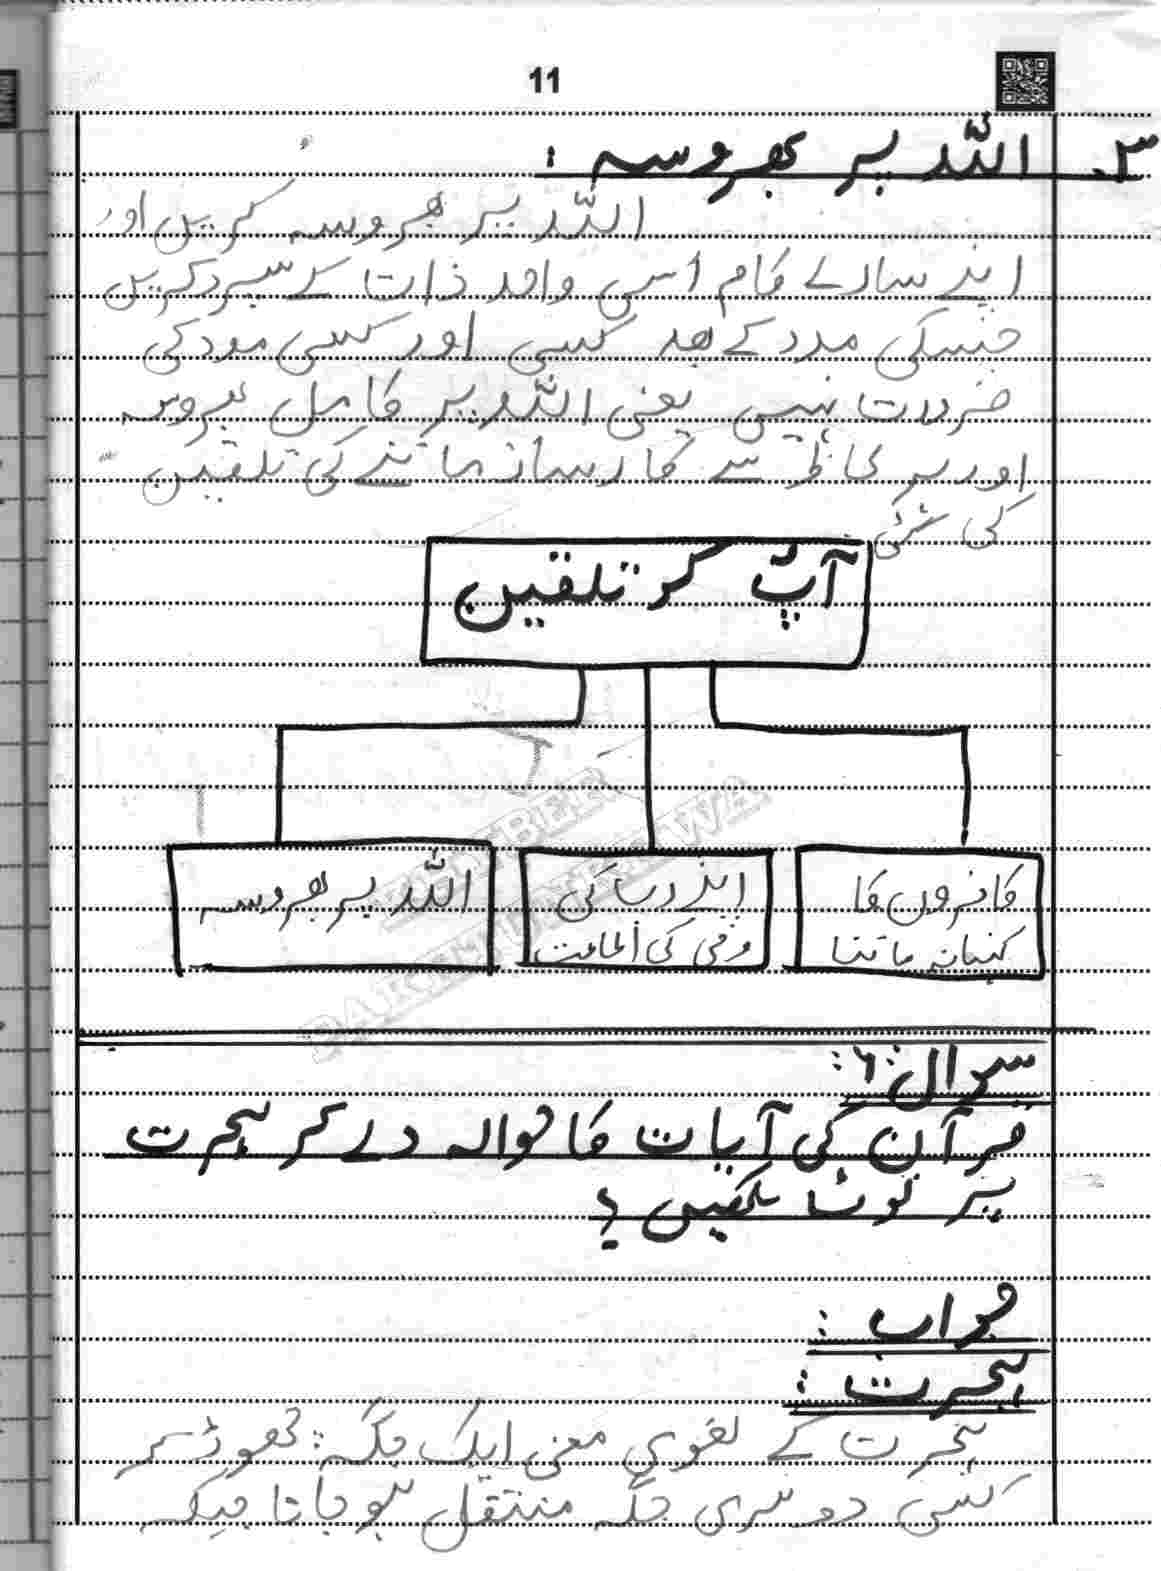 11
۳. اللہ پر بھروسہ :
اللہ پر بھروسہ کریں اور
اپنے سارے کام اسی واحد ذات کے سپرد کریں
جسکی مدد کے بعد کسی اور کسی مدد کی
ضرورت نہیں یعنی اللہ پر کامل بھروسہ
اور ہر لحاظ سے کارساز ماننے کی تلقین
کی گئی
آپؐ کو تلقین
کافروں کا
کہنا نہ ماننا
اپنے رب کی
وحی کی اطاعت
اللہ پر بھروسہ
KHYBER
PAKHTUNKHWA
سوال ۶:
قرآن کی آیات کا حوالہ دے کر ہجرت
پر نوٹ لکھیں ؟
جواب :
ہجرت :
ہجرت کے لغوی معنی ایک جگہ چھوڑ کر
کسی دوسری جگہ منتقل ہو جانا جبکہ